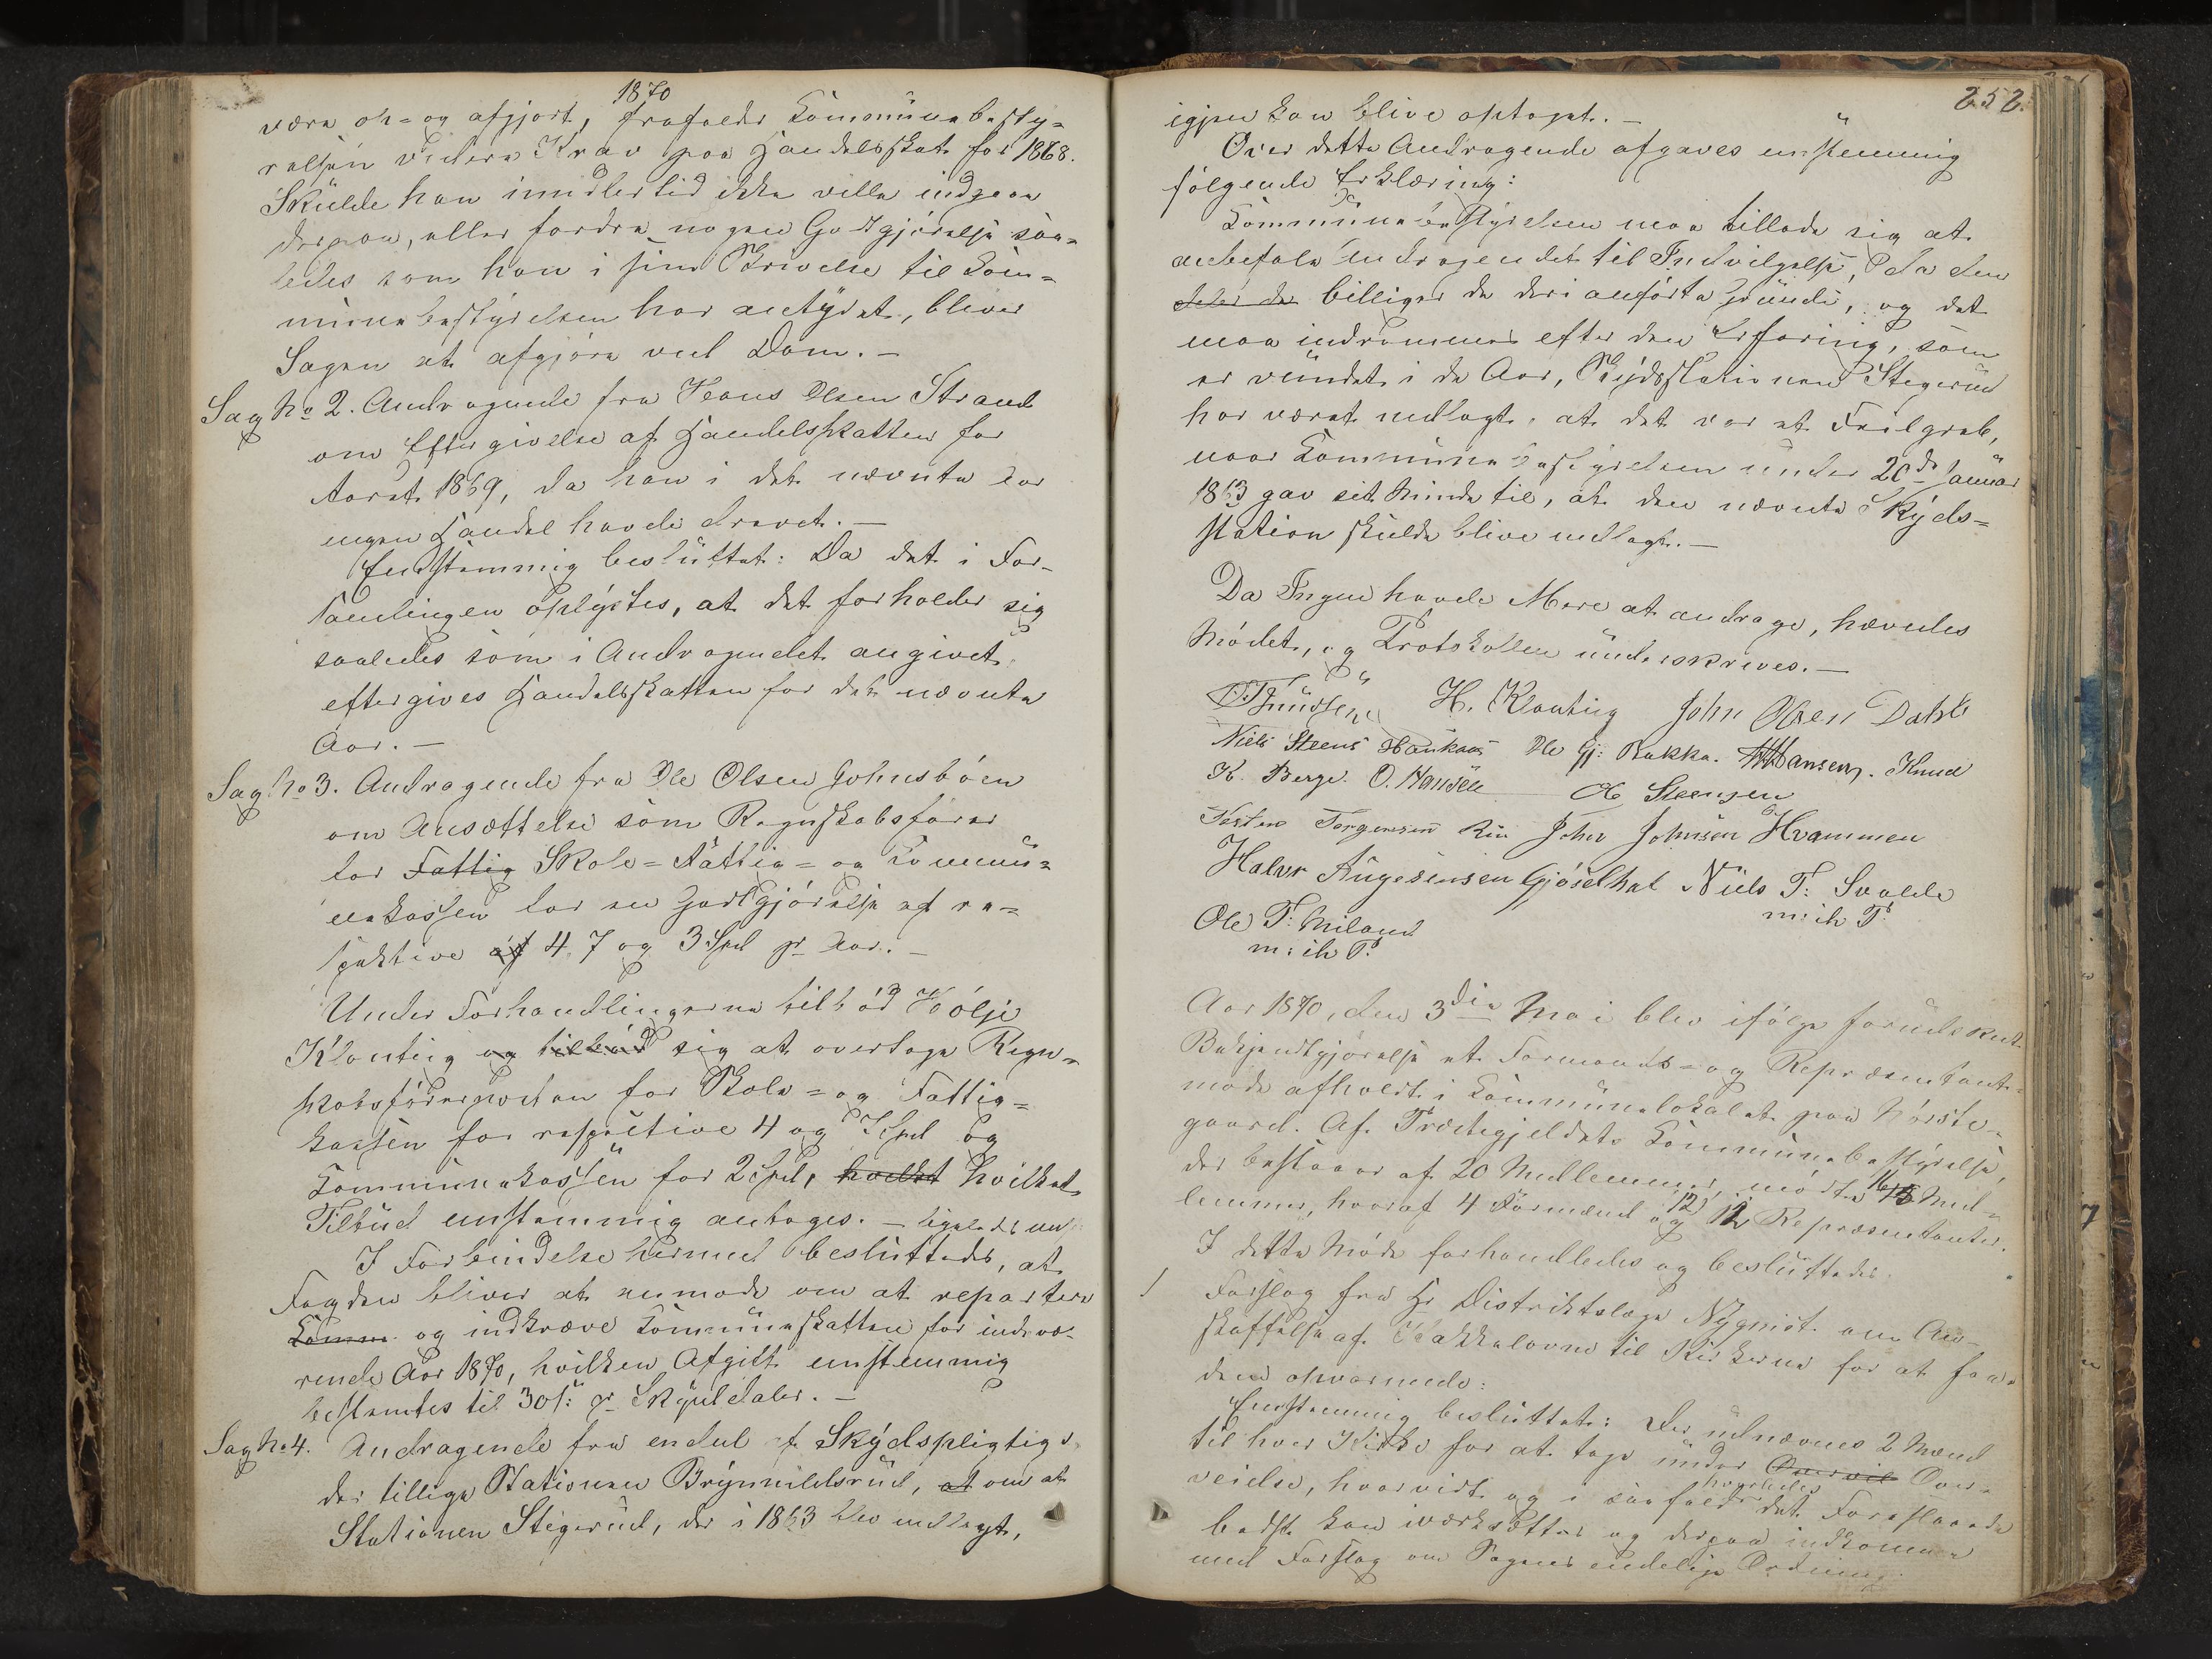 1870
være op- og afgjort, frafalder Kommunebesty-
relsen videre Krav paa Handelsskat for 1868.
Skulde han imidlertid ikke ville indgaa
derpaa, eller fordre nogen Godtgjørelse saa-
ledes som han i sin Skrivelse til Kom-
munebestyrelsen har antydet, bliver
Sagen at afgjøre ved Dom. —
Sag No 2. Andragende fra Hans Olsen Strand
om Eftergivelse af Handelsskatten for
Aaret 1869, da han i det nævnte Aar
ingen Handel havde drevet. —
Enstemmig besluttet: Da det i For-
samlingen oplystes, at det forholder sig
saaledes som i Andragendet angivet,
eftergives Handelsskatten for det nævnte
Aar. —
Sag No 3. Andragende fra Ole Olsen Johnsbøen
om Ansættelse som Regnskabsfører
for Fattig Skole- Fattig- og Kommu-
nekassen for en Godtgjørelse af re-
spektive af 4, 7 og 3 Spd pr Aar. —
Under Forhandlingerne tilbød Hølje
Klonteig og tilbød sig at overtage Regn-
skabsførerposten for Skole- og Fattig-
kassen for respective 4 og 7 Spd og
Kommunekassen for 2 Spd, hvilket hvilket
Tilbud enstemmig antoges. — ligeledes
I Forbindelse hermed besluttedes, at
Fogden bliver at anmode om at repartere
Komm og indkræve Kommuneskatten for indevæ-
rende Aar 1870, hvilken Afgift enstemmig
bestemtes til 30 s: pr Skylddaler. —
Sag No 4. Andragende fra endel af Skydspligtige
der tillige Stationen Brynnildsrud, at om at
Stationen Stigerud, der i 1863 blev nedlagt,
252.
igjen kan blive optaget. —
Over dette Andragende afgaves enstemmig
følgende Erklæring:
Kommunebestyrelsen maa tillade sig at
anbefale Andragendet til Indvilgelse, da den
deler de billiger de deri anførte Grunde, og det
maa indrømmes efter den Erfaring, som
er vundet i de Aar, Skydsstationen Stegerud
har været nedlagt, at det var et Feilgreb,
naar Kommunebestyrelsen under 20de Januar
1863 gav sit Minde til, at den nævnte Skyds-
station skulde blive nedlagt. —
Da Ingen havde Mere at andrage, hævedes
Mødet, og Protokollen underskreves. —
Knudsen H. Klonteig John Olsen Dahle
Niels Steens Haukaas Ole Gj: Bakka. Hansen. Knud
K. Berge. O. Hansen Ole Steensen
Torgersen John Johnsen Hvammen
Halvor Augesensen Gjøselhal Niels T: Svalde
m: ih: P:
Ole T: Miland
m: ih P:
Aar 1870, den 3die Mai blev ifølge forudskeet
Bekjendtgjørelse et Formands- og Repræsentant-
møde afholdt i Kommunelokalet paa Nørste-
gaard. Af Prestegjeldets Kommunebestyrelse,
der bestaaer af 20 Medlemmer, mødte 16 Med-
lemmer, hvoraf 4 Formænd og 12 12 Repræsentanter.
I dette Møde forhandledes og besluttedes:
1 Forslag fra Hr Distriktslæge Nyquist om An-
skaffelse af Kakkelovne til Kirkerne for at faa
dem opvarmede:
Enstemmig besluttet: Der udnævnes 2 Mænd
til hver Kirke for at tage under Overvei Over-
veielse, hvorvidt og i saafald hvorledes det Foreslaaede
bedst kan iværksættes og derpaa indkomme
med Forslag om Sagens endelige Ordning.